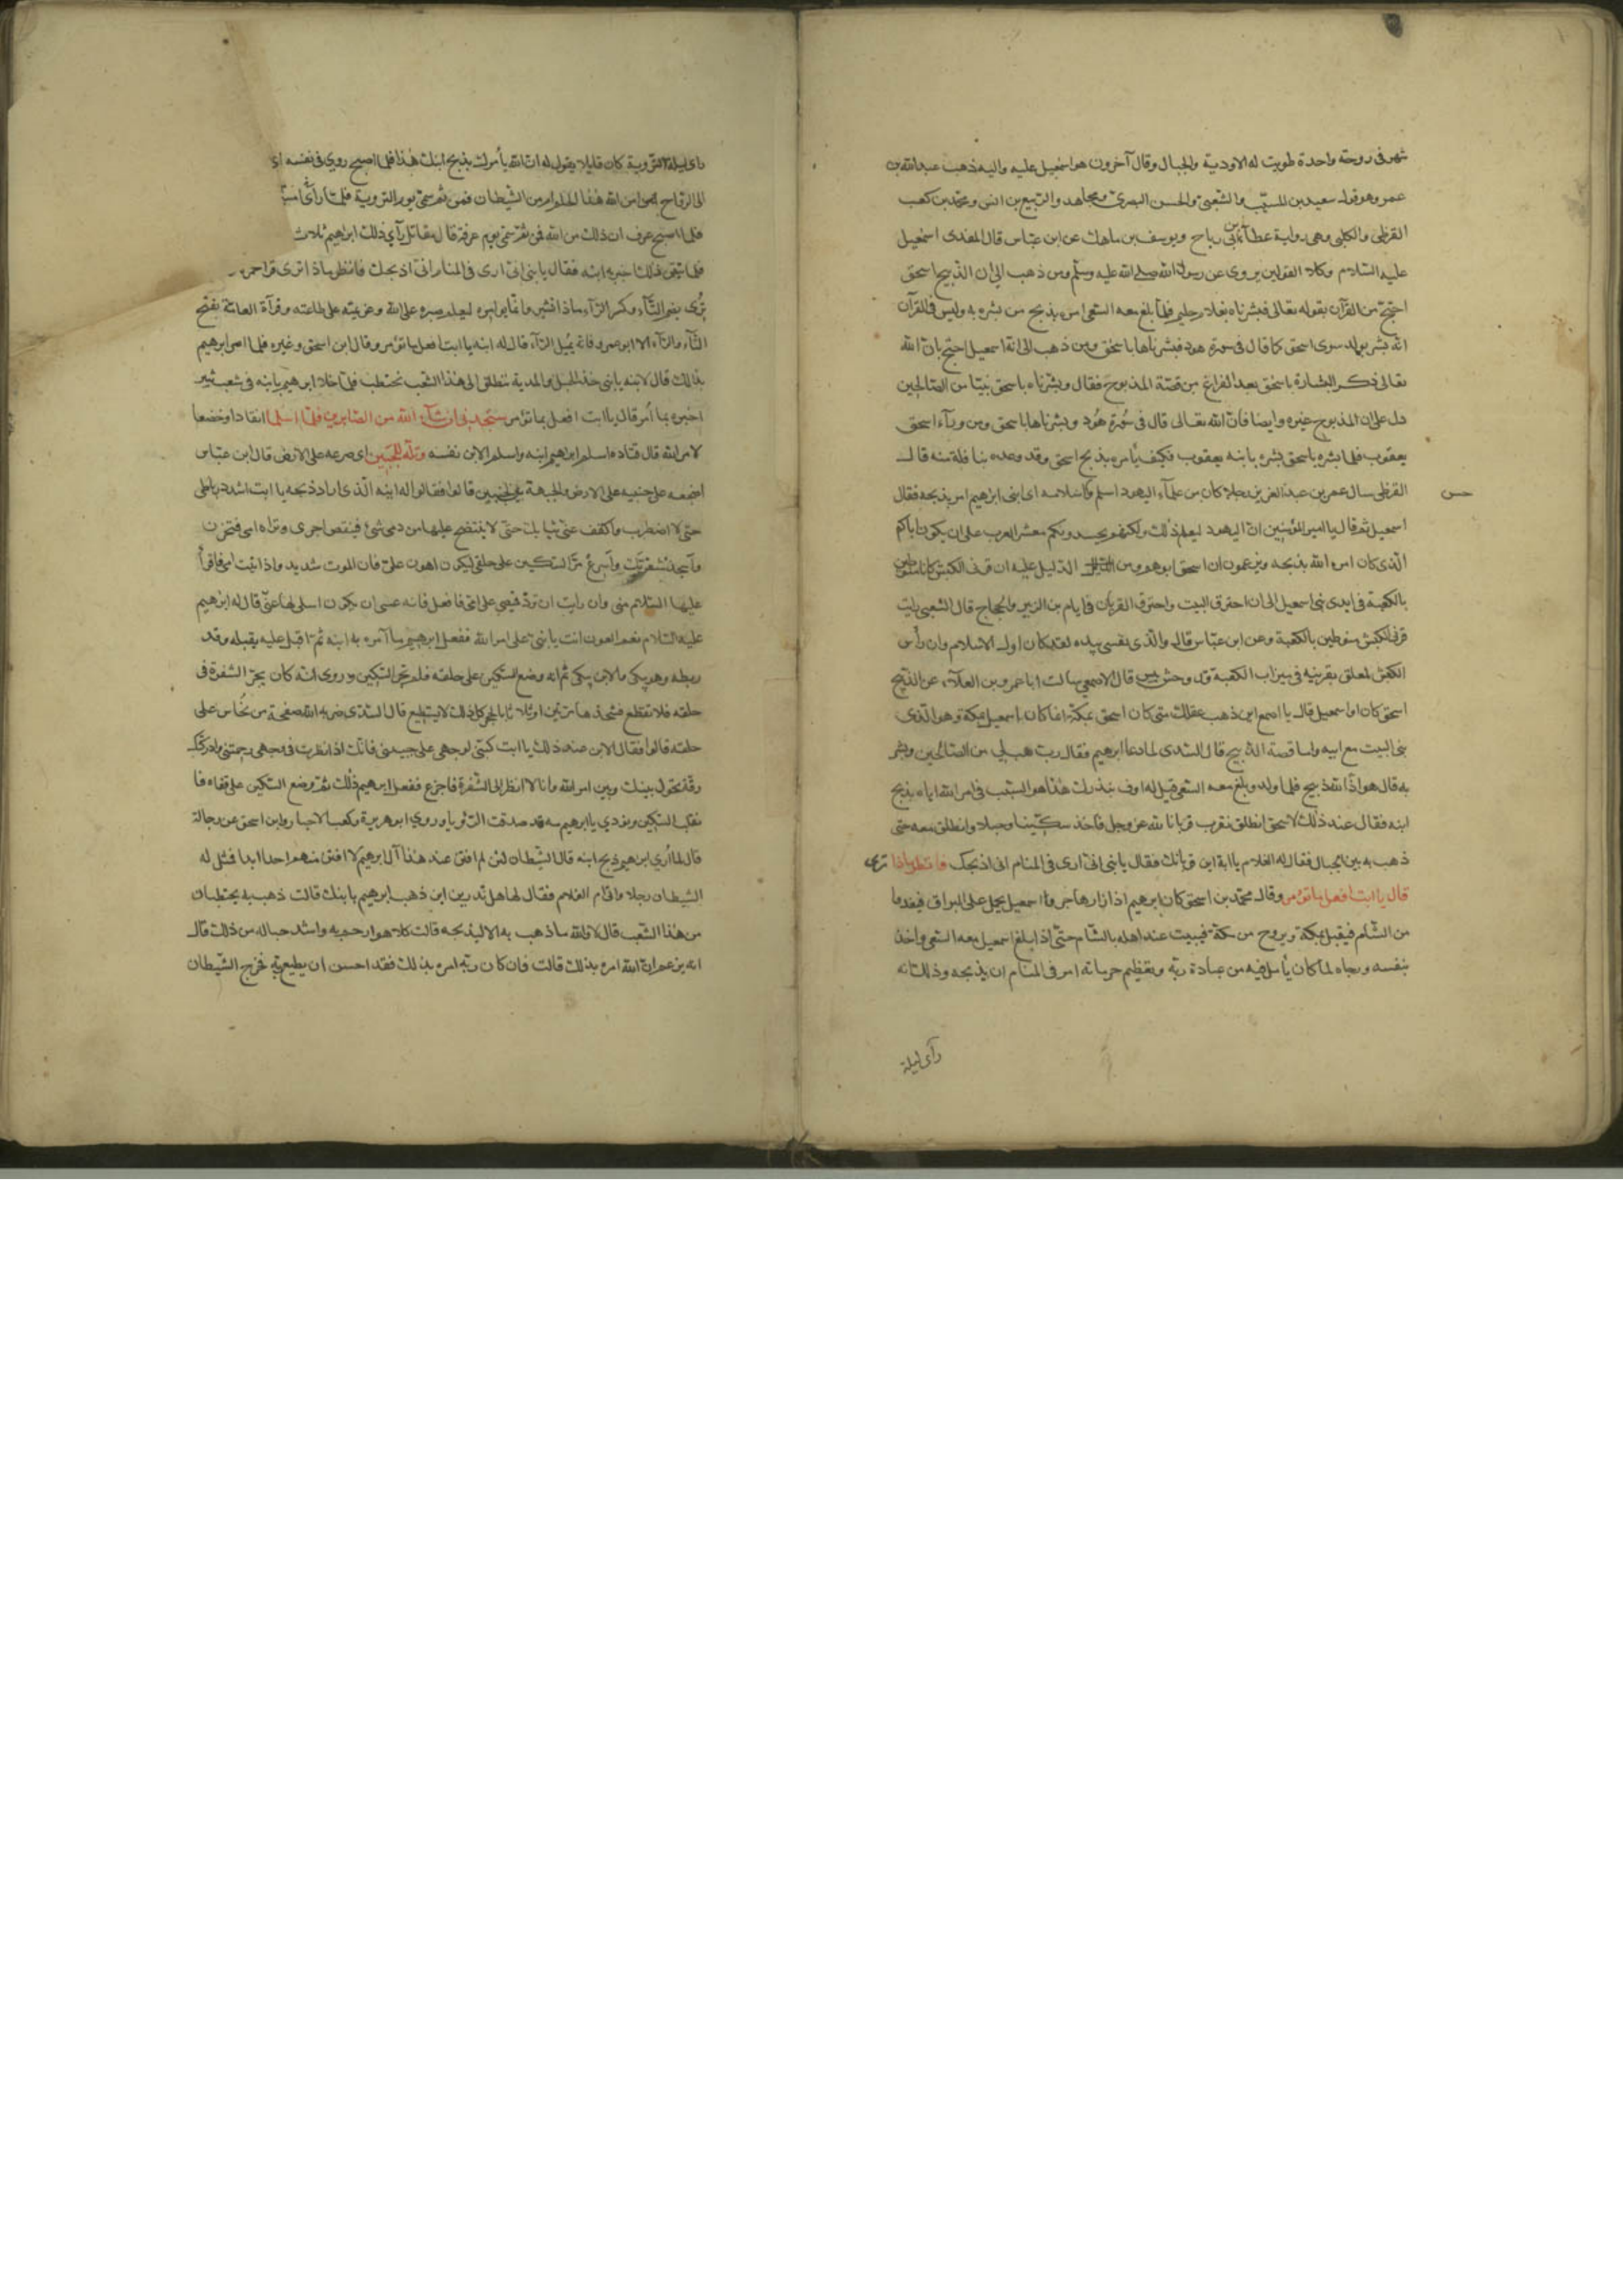 شهر فى روحة واحدة طويت له الاودية والجبال وقال آخرون هو اسمعيل عليه واليه ذهب عبد الله بن
عمر وهو قول سعيد بن المسيب والشعبى والحسن البصرى ومجاهد والربيع بن انس ومحمد بن كعب
القرظى والكلبى وهى رواية عطآء بن ابى رباح ويوسف بن ماهك عن ابن عباس قال المفدى اسمعيل
عليه السلام وكلا القولين يروى عن رسول الله صلى الله عليه وسلم ومن ذهب الى ان الذبيح اسحق
احتج من القرآن بقوله تعالى فبشرناه بغلام حليم فلما بلغ معه السعى امر بذبح من بشره به وليس فى القرآن
انه بشر بولد سوى اسحق كما قال فى سورة هود فبشرناها باسحق ومن ذهب الى انه اسمعيل احتج بان الله
تعالى ذكر البشارة باسحق بعد الفراغ من قصة المذبوح فقال وبشرناه باسحق نبيا من الصالحين
دل على ان المذبوح غيره وايضا فان الله تعالى قال فى سورة هود وبشرناها باسحق ومن ورآء اسحق
يعقوب فلما بشره باسحق بشره بابنه يعقوب فكيف يأمره بذبح اسحق وقد وعده بنافلة منه قال
القرظى سال عمر بن عبد العزيز رجلا كان من علمآء اليهود اسلم وحسن اسلامه اى ابنى ابرهيم امر بذبحه فقال
اسمعيل ثم قال يا امير المؤمنين ان اليهود ليعلم ذلك ولكنهم يحسدونكم معشر العرب على ان يكون اباكم
الذى كان امر الله بذبحه ويزعمون ان اسحق ابوهم ومن الدليل عليه ان قرنى الكبش كانا منوطين
بالكعبة فى ايدى بنى اسمعيل الى ان احترق البيت واحترق القرنان فى ايام بن الزبير والحجاج قال الشعبى رايت
قرنى الكبش منوطين بالكعبة وعن ابن عباس قال والذى نفسى بيده لقد كان اول الاسلام وان رأس
الكبش لمعلق بقرنيه فى ميزاب الكعبة قد وحش يبس قال الاصمعى سالت ابا عمرو بن العلآء عن الذبيح
اسحق كان او اسمعيل قال يا اصمع اين ذهب عقلك متى كان اسحق بمكة انما كان اسمعيل بمكة وهو الذى
بنى البيت مع ابيه واما قصة الذبيح قال السدى لما دعا ابرهيم فقال رب هب لى من الصالحين وبشر
به قال هو اذا لله ذبيح فلما ولد وبلغ معه السعى قيل له اوف بنذرك هذا هو السبب فى امر الله اياه بذبح
ابنه فقال عند ذلك لاسحق انطلق نقرب قربانا لله عز وجل فاخذ سكينا وحبلا وانطلق معه حتى
ذهب به بين الجبال فقال له الغلام يا ابة اين قربانك فقال يا بنى انى ارى فى المنام انى اذبحك فانظر ماذا ترى
قال يا ابت افعل ما تؤمر وقال محمد بن اسحق كان ابرهيم اذا زار هاجر واسمعيل يحمل على البراق فيغدوا
من الشام فيقيل بمكة ويروح من مكة فيبيت عند اهله بالشام حتى اذا بلغ اسمعيل معه السعى واخذ
بنفسه ورجاه لما كان يأمل فيه من عبادة ربه وتعظيم حرماته امر فى المنام ان يذبحه وذلك انه
رأى ليلة
رأى ليلة التروية كان قايلا يقول له ان الله يأمرك بذبح ابنك هذا فلما اصبح روى فى نفسه اى
الى الرواح امن الله هذا الحلم ام من الشيطان فمن ثم سمى يوم التروية فلما رأى
فلما اصبح عرف ان ذلك من الله فمن ثم سمى يوم عرفة قال مقاتل رأى ذلك ابرهيم ثلاث
فلما تيقن ذلك اخبر به ابنه فقال يا بنى انى ارى فى المنام انى اذبحك فانظر ماذا ترى قرا حمزة
ترى بضم التآء وكسر الرآء ماذا تشير وانما امره ليعلم صبره على الله وعزيمته على طاعته وقرآة العامة بفتح
التآء والرآء الا ابو عمرو فانه يميل الرآء قال له ابنه يا ابت افعل ما تؤمر وقال ابن اسحق وغيره فلما امر ابرهيم
بذلك قال لابنه يا بنى خذ الحبل والمدية ننطلق الى هذا الشعب نحتطب فلما خلا ابرهيم بابنه فى شعب ثبير
اخبره بما امر قال يا ابت افعل بما تؤمر ستجدنى ان شآء الله من الصابرين فلما اسلما انقادا وخضعا
لامر الله قال قتادة اسلم ابرهيم ابنه واسلم الابن نفسه وتله للجبين اى صرعه على الارض قال ابن عباس
اضجعه على جنبيه على الارض والجبهة بين الجبينين قالوا فقالوا له ابنه الذى اراد ذبحه يا ابت اشدد رباطى
حتى لا اضطرب واكفف عنى ثيابك حتى لا ينتضح عليها من دمى شئ فينقص اجرى وتراه امى فتحزن
واستحد شفرتك واسرع مر السكين على حلقى ليكون اهون على فان الموت شديد واذا اتيت امى فاقرأ
عليها السلام منى وان رايت ان ترد قميصى على امى فافعل فانه عسى ان يكون اسلى لها عنى قال له ابرهيم
عليه السلام نعم العون انت يا بنى على امر الله ففعل ابرهيم ما آمره به ابنه ثم اقبل عليه يقبله وقد
ربطه وهو يبكى والابن يبكى ثم انه وضع السكين على حلقه فلم تحز السكين وروى انه كان يجر الشفرة فى
حلقه فلا تقطع فشحذها مرتين او ثلاثا بالحجر كل ذلك لا يستطيع قال السدى ضربه الله صفيحة من نحاس على
حلقه قالوا فقال الابن عند ذلك يا ابت كبنى لوجهى على جبينى فانك اذا نظرت فى وجهى رحمتنى وادركتك
رقة تحول بينك وبين امر الله وانا لا انظر الى الشفرة فاجزع ففعل ابرهيم ذلك ثم وضع السكين على قفاه فا
نقلب السكين ونودى يا ابرهيم مه قد صدقت الرؤيا وروى ابو هريرة وكعب الاحبار وابن اسحق عن رجاله
قال لما ارى ابرهيم ذبح ابنه قال الشيطان لئن لم افتن عند هذا آل ابرهيم لا افتن منهم احدا ابدا فمثل له
الشيطان رجلا واتى ام الغلام فقال لها هل تدرين اين ذهب ابرهيم بابنك قالت ذهب به يحتطبان
من هذا الشعب قال لا والله ما ذهب به الا ليذبحه قالت كلا هو ارحم به واشد حبا له من ذلك قال
انه يزعم ان الله امره بذلك قالت فان كان ربه امره بذلك فقد احسن ان يطيع ربه فخرج الشيطان